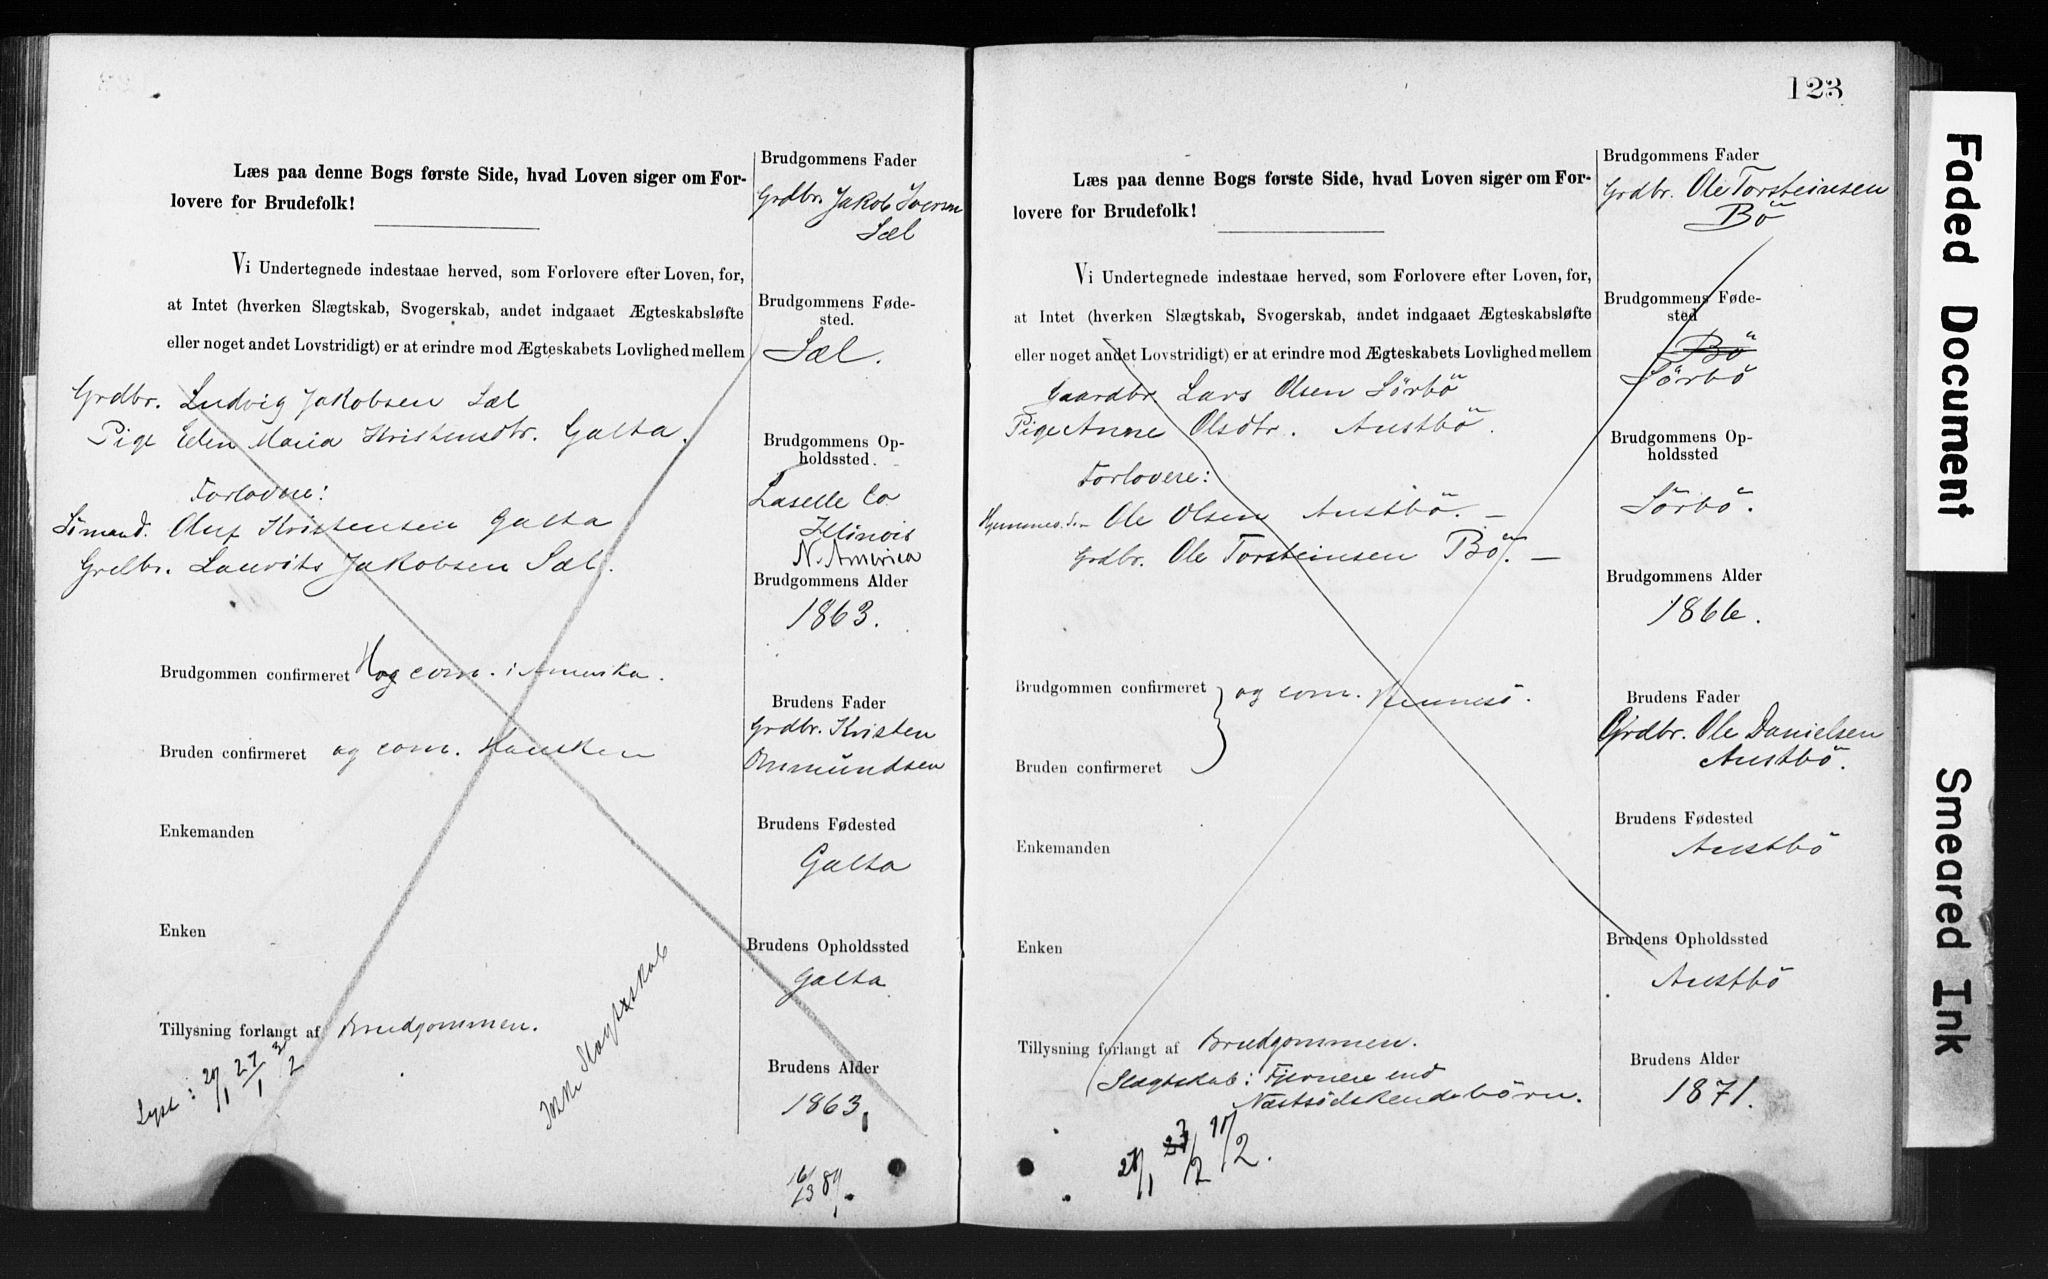 Læs paa denne Bogs første Side, hvad Loven siger om For-
lovere for Brudefolk!
Vi Undertegnede indestaae herved, som Forlovere efter Loven, for,
at Intet (hverken Slægtskab, Svogerskab, andet indgaaet Ægteskabsløfte
eller noget andet Lovstridigt) er at erindre mod Ægteskabets Lovlighed mellem
Grdbr. Ludvig Jakobsen Sæl
Pige Elen Maria Kristensdtr. Galta.
Forlovere:
Sömand. Oluf Kristensen Galta
Grdbr. Lauvits Jakobsen Sæl.
Brudgommen confirmeret og com. i Amerika.
Bruden confirmeret og com. Hausken
Enkemanden
Enken
Tillysning forlangt af Brudgommen.
Lyst: 20/1 27/1 3/2
Ikke Slægtskab
Brudgommens Fader
Grdbr. Jakob Iversen
Sæl
Brudgommens Føde-
sted.
Sæl.
Brudgommens Op-
holdssted.
Laselle Co
Illinois
N. America
Brudgommens Alder
1863.
Brudens Fader
Grdbr. Kristen
Ommundsen
Brudens Fødested
Galta
Brudens Opholdssted
Galta
Brudens Alder
1863.
123
Læs paa denne Bogs første Side, hvad Loven siger om For-
lovere for Brudefolk!
Vi Undertegnede indestaae herved, som Forlovere efter Loven, for,
at Intet (hverken Slægtskab, Svogerskab, andet indgaaet Ægteskabsløfte
eller noget andet Lovstridigt) er at erindre mod Ægteskabets Lovlighed mellem
Gaardbr. Lars Olsen Sörbö
Pige Anne Olsdtr. Austbö.
Forlovere:
Ole Olsen Austbö. –
Grdbr. Ole Torsteinsen Bö. –
Brudgommen confirmeret og com. Rennesö.
Bruden confirmeret
Enkemanden
Enken
Tillysning forlangt af Brudgommen.
Slægtskab: Fjernere end
Næstsödskendebörn.
Brudgommens Fader
Grdbr. Ole Torsteinsen
Bö
Brudgommens Føde-
sted
Bö
Sörbö
Brudgommens Op-
holdssted
Sörbö.
Brudgommens Alder
1866.
Brudens Fader
Grdbr. Ole Danielsen
Austbö.
Brudens Fødested
Austbö
Brudens Opholdssted
Austbö
Brudens Alder
1871.
Faded Document
Smeared Ink